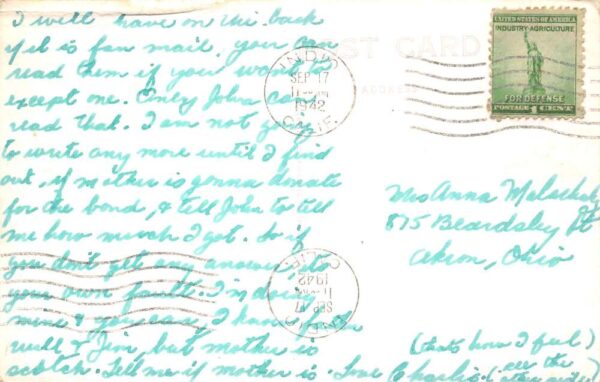 I will have on the back
yet is fan mail. you can
read them if you want to
except one. Only John can
read that. I am not going
to write any more until I find
out, if mother is gonna donate
for the bond, & tell John to tell
me how much I got. So if
you don't get any answer, its
your own fault. I'm doing
mine & you can, I know you
will & Jim, but mother is
scotch. Tell me if mother is. Love Charlie.
(thats how I feel)
(see the other side)
POST CARD
ADDRESS
INDIO
SEP 17
11 AM
1942
CALIF.
UNITED STATES OF AMERICA
INDUSTRY-AGRICULTURE
FOR DEFENSE
POSTAGE 1 CENT
Mrs Anna
875 Beardsley St
Akron, Ohio
INDIO
SEP 17
11 AM
1942
CALIF.